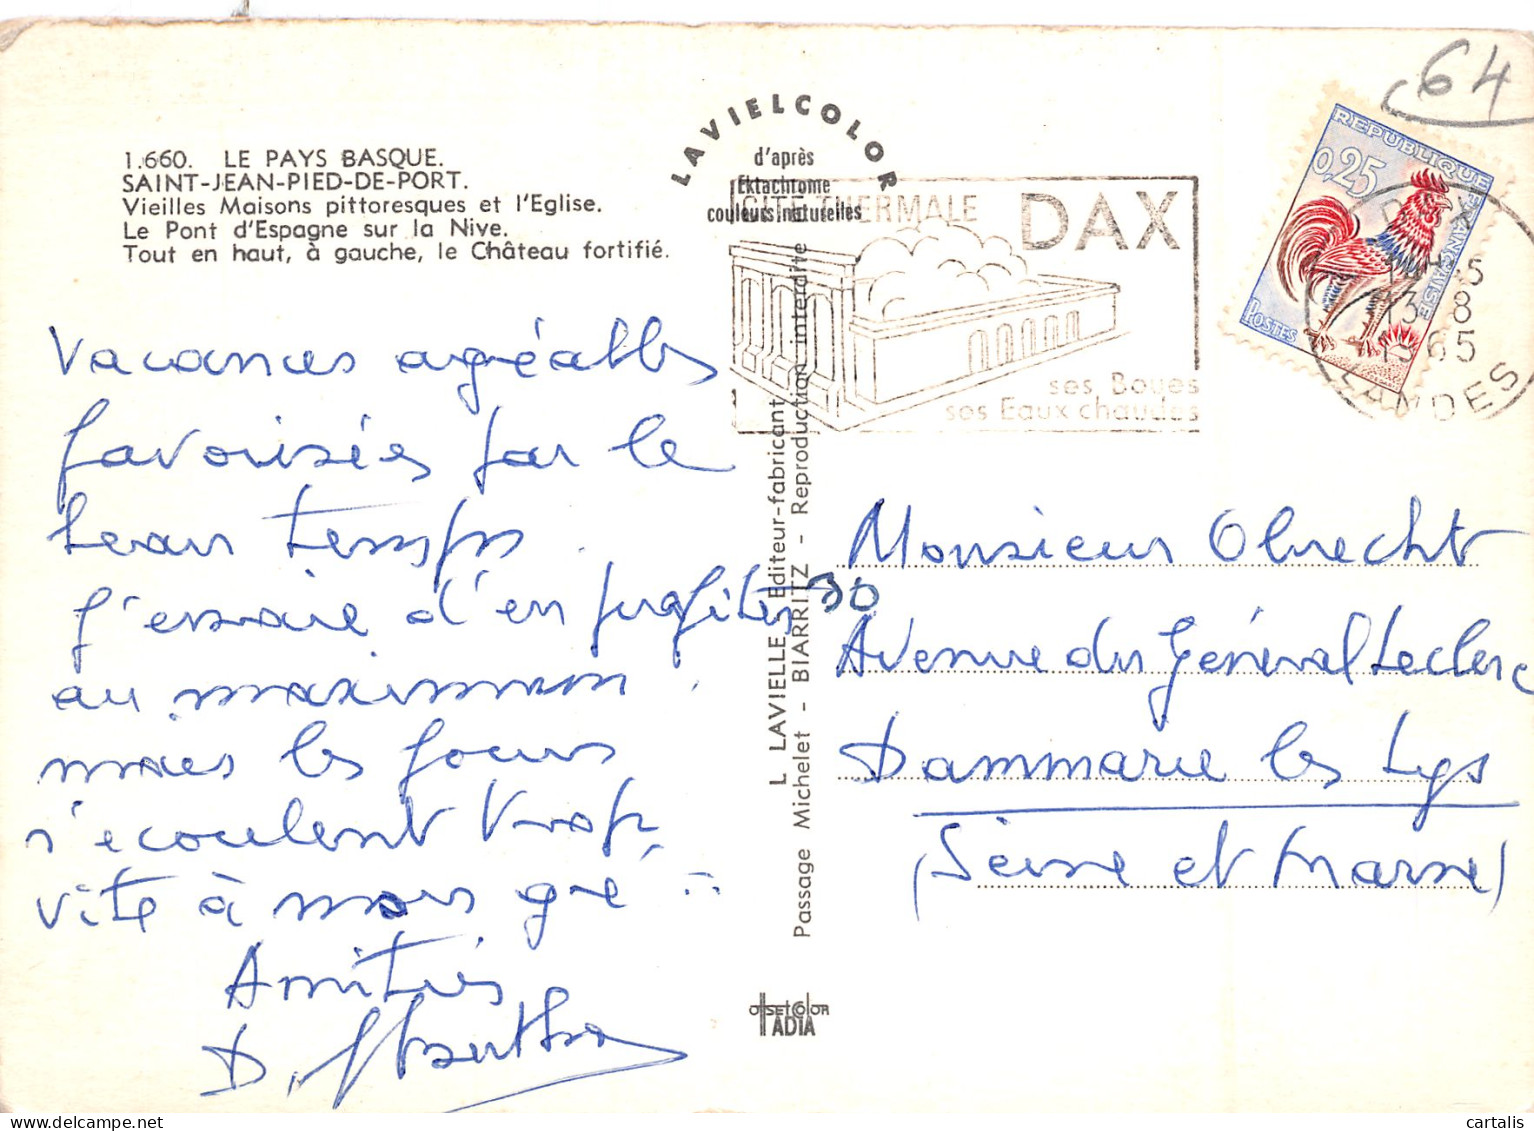 64
1.660. LE PAYS BASQUE.
SAINT-JEAN-PIED-DE-PORT.
Vieilles Maisons pittoresques et l'Eglise.
Le Pont d'Espagne sur la Nive.
Tout en haut, à gauche, le Château fortifié.
LAVIELCOLOR
d'après
Ektachrome
couleurs naturelles
CITÉ THERMALE DAX
ses Boues
ses Eaux chaudes
REPUBLIQUE FRANÇAISE
0,25
POSTES
DAX
13 8
1965
LANDES
Vacances agréables
favorisées par le
beau temps.
J'essaie d'en profiter
au maximum,
mais les jours
s'écoulent trop
vite à mon gré...
Amitiés
D.
L. LAVIELLE, Editeur-fabricant
Passage Michelet - BIARRITZ - Reproduction interdite
Monsieur Obrecht
30
Avenue du Général Leclerc
Dammarie les Lys
(Seine et Marne)
OFFSET COLOR
IADIA
cartalis